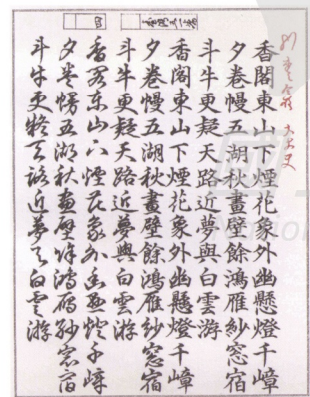 香閣東山下煙花象外幽懸燈千嶂
夕卷幔五湖秋畫壁餘鴻雁紗窗宿
斗牛更疑天路近夢與白雲游
香閣東山下煙花象外幽懸燈千嶂
夕卷幔五湖秋畫壁餘鴻雁紗窗宿
斗牛更疑天路近夢與白雲游
香閣東山下煙花象外幽懸燈千嶂
夕卷幔五湖秋畫壁餘鴻雁紗窗宿
斗牛更疑天路近夢與白雲游
四